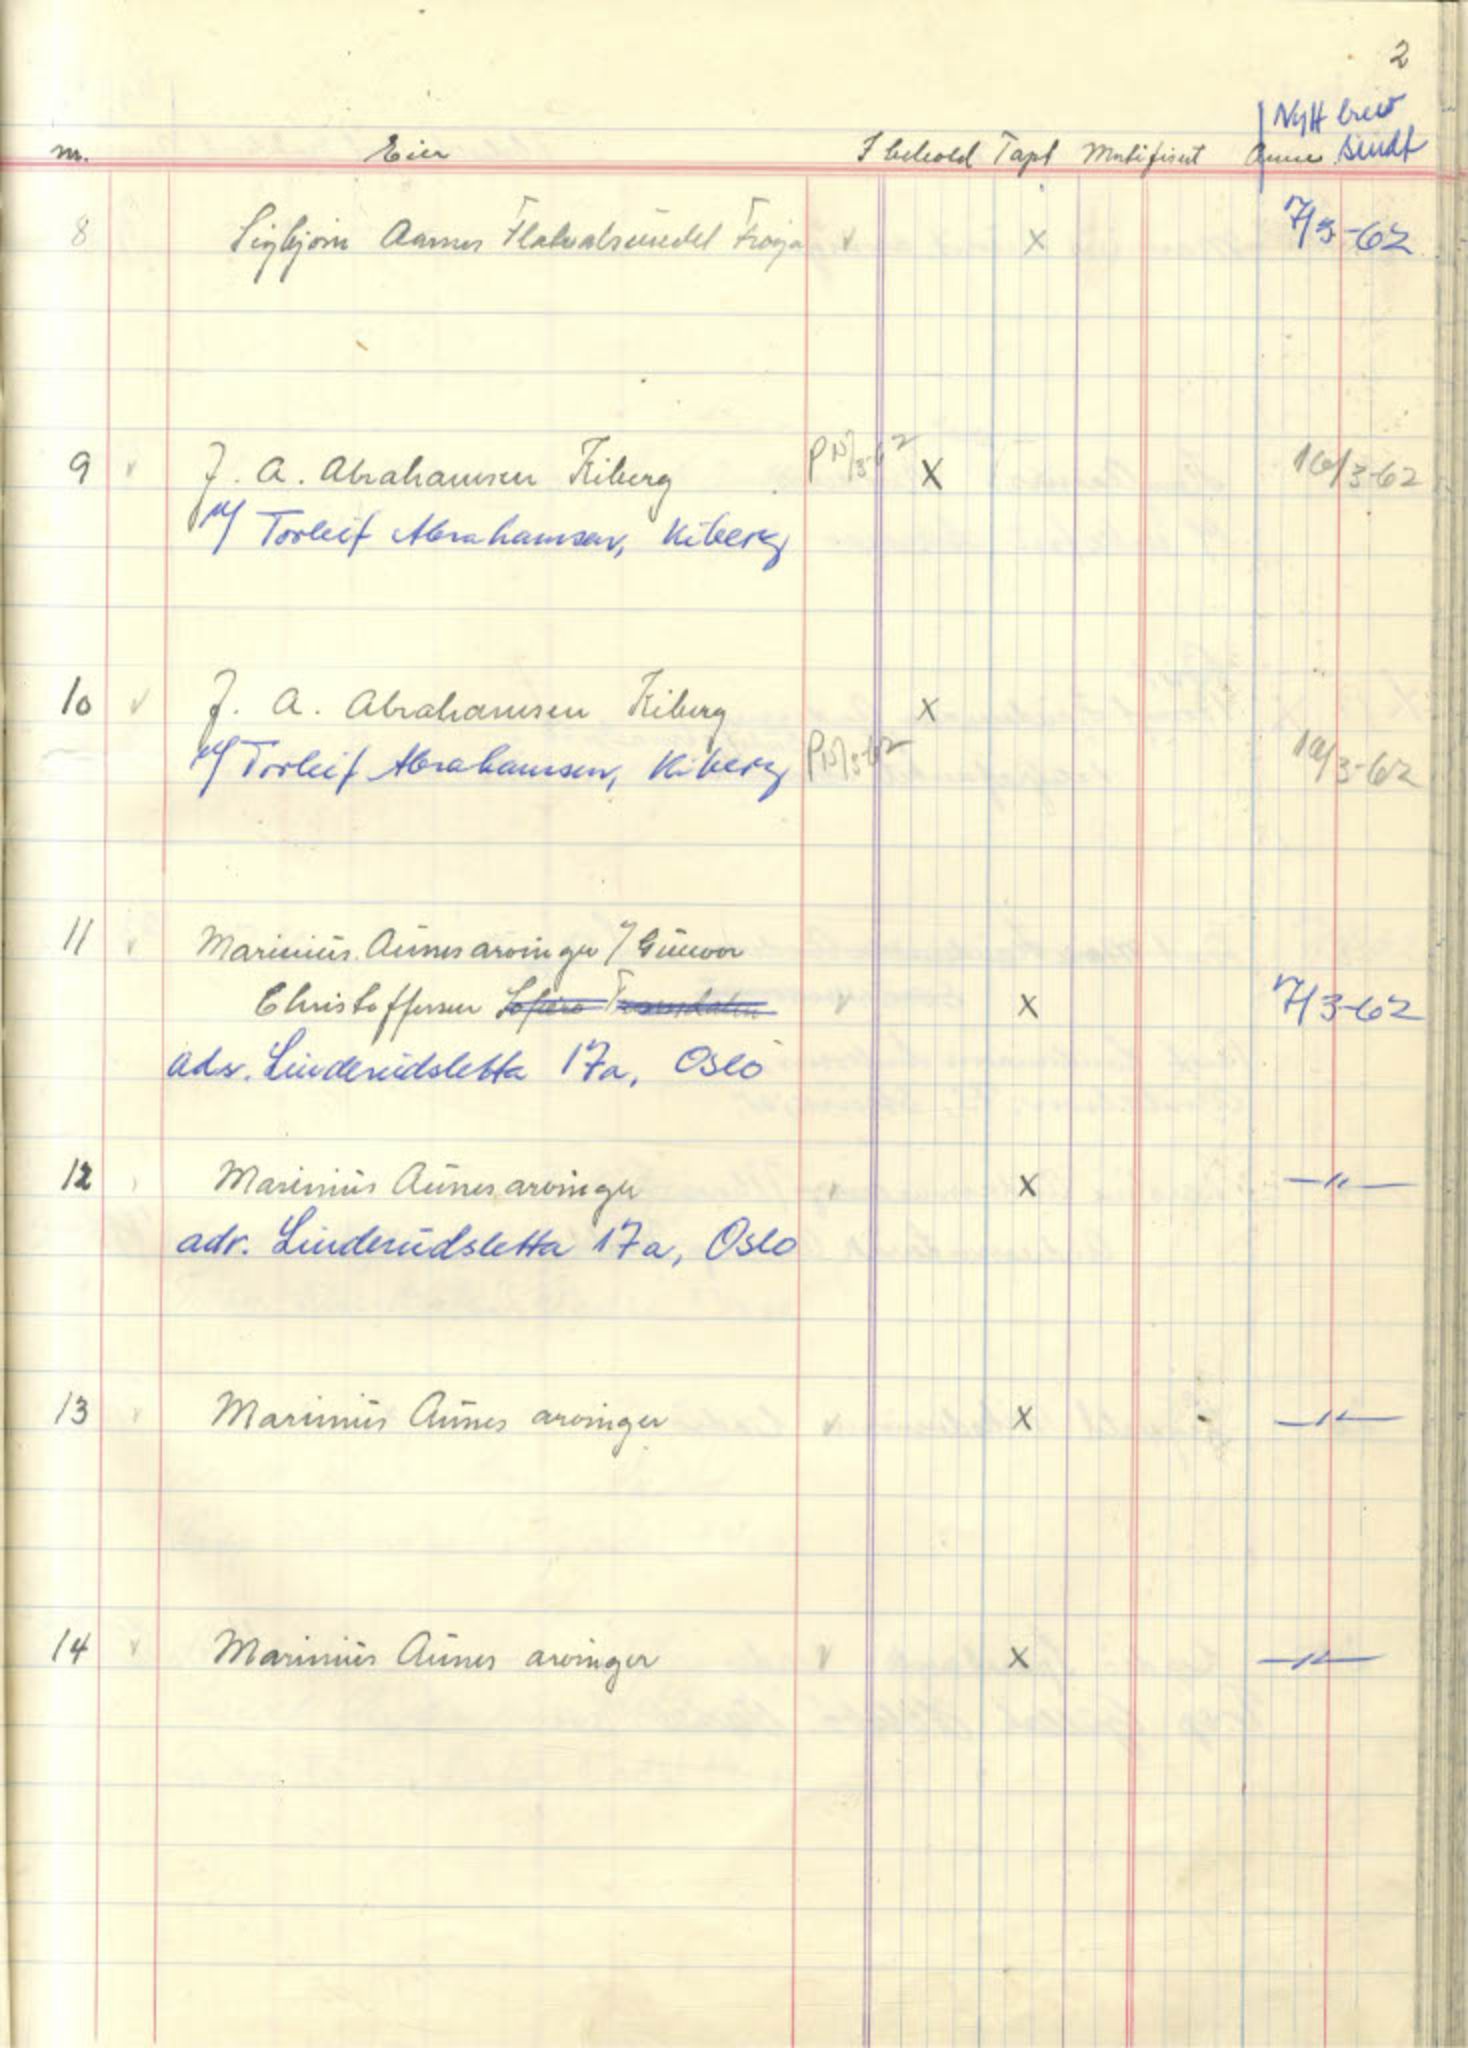 2
Nytt brev
nr. Eier I behold Tapt Mortifisert Anm. sendt
8 Sigbjørn Aarnes Flatvalsundet Frøya v x 7/3-62
9 v J. A. Abrahamsen Kiberg /3-62 X 16/3-62
v/ Torleif Abrahamsen, Kiberg
10 v J. A. Abrahamsen Kiberg x
v/ Torleif Abrahamsen, Kiberg /3-62 16/3-62
11 v Marinius Aunes arvinger v/ Gunvor
Christoffersen v x 7/3-62
adr. Linderudsletta 17a, Oslo
12 Marinius Aunes arvinger v x —"—
adr. Linderudsletta 17a, Oslo
13 v Marinius Aunes arvinger v x —"—
14 v Marinius Aunes arvinger v x —"—